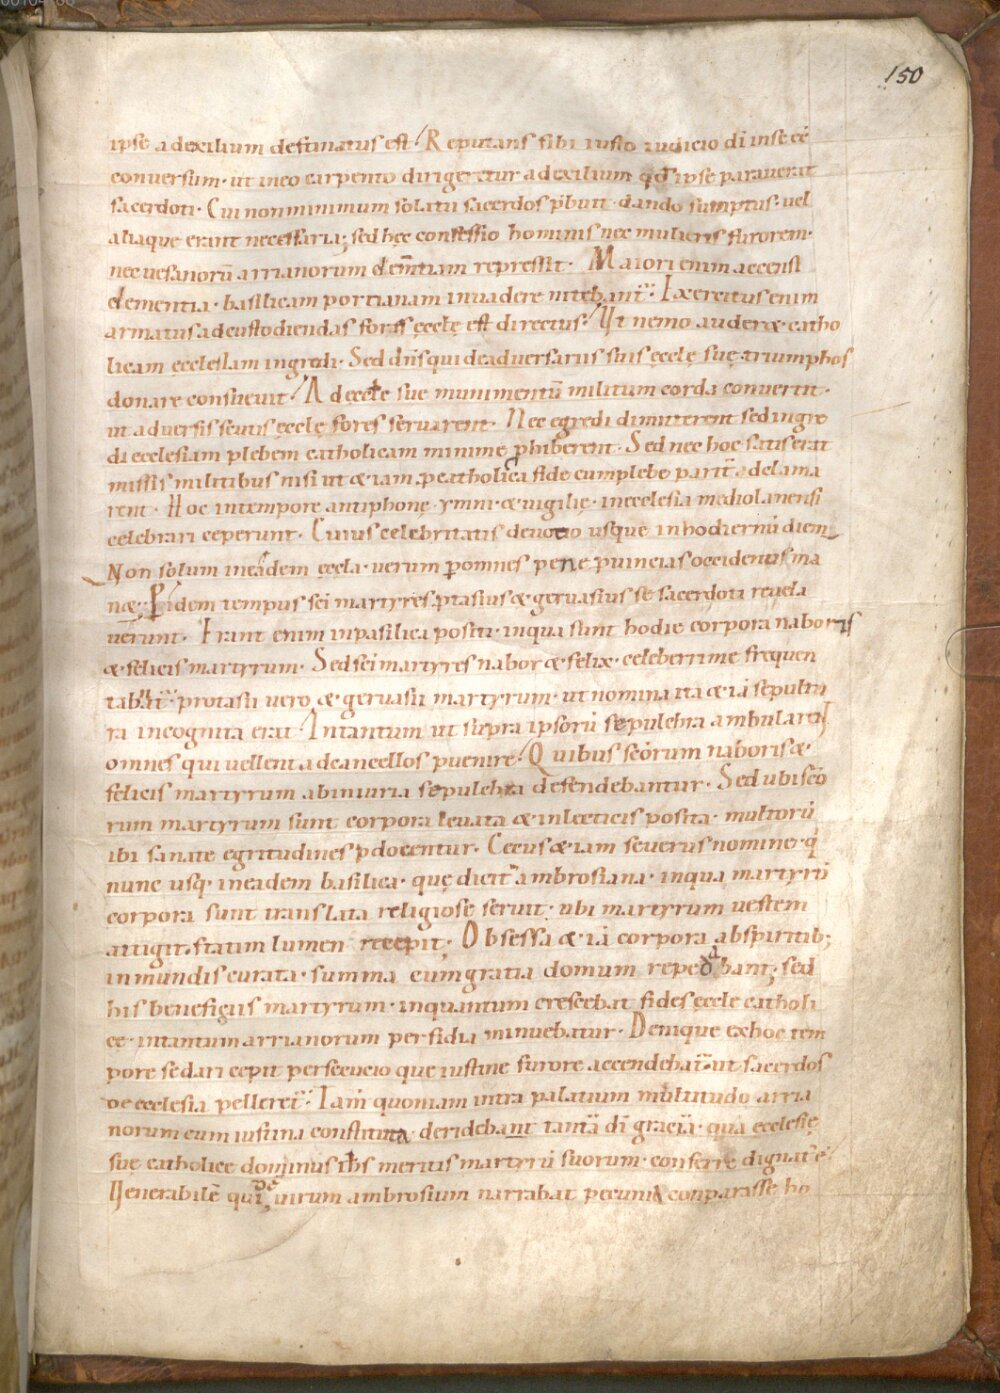 150
ipse ad exilium destinatus est. Reputans sibi iusto iudicio dī in se ēē
conversum· ut in eo carpento dirigeretur ad exilium qđ ipse paraverat
sacerdoti· Cui non minimum solatii sacerdos p̄buit· dando sumptus· vel
aliaque erant necessaria; sed hęc confessio hominis nec mulieris furorem·
nec uesanorū arrianorum dem̄tiam repressit· Maiori enim accensi
dementia· basilicam portianam invadere nitebant· Exercitus enim
armatus ad custodiendas fores ęcclę est directus· Ut nemo auderæ catho
licam ęcclesiam ingredi· Sed dn̄s qui de adversariis suis ęcclę suę triumphos
donare consuevit· Ad ecctę sue munimentū militum corda convertit·
ut adversis scutis ęcclę fores servarent· Nec egredi dimitterent sed ingre
di ecclesiam plebem catholicam minime phiberent· Sed nec hoc satis erat
missis militibus nisi ut & iam p catholica fide cum plebe parit adclama
rent· Hoc in tempore antiphonę· ymni· & vigilię· in ecclesia mediolanensi
celebrari ceperunt· Cuius celebritatis devotio usque in hodiernū diem
Non solum in eadem ęccla· verum p omnes pene puincias occidentis ma
næ; P idem tempus sci martyres ptasius & gervasius se sacerdoti revela
verunt· Erant enim in pasilica positi· in qua sunt hodie corpora naboris
& felicis martyrum· Sed sci martyres nabor & felix· celeberrime frequen
tabant· protasii vero & gervasii martyrum· ut nomina ita & iā sepultu
ra incognita erat· Intantum ut supra ipsorū sepulchra ambularent
omnes qui vellent ad cancellos pvenire· Quibus scōrum naboris &
felicis martyrum ab iniuria sepulchra defendebantur· Sed ubi scō
rum martyrum sunt corpora levata & in lecticis posita· multorū
ibi sanate egritudines pdocentur· Cecus & iam severus nomine· q
nunc usq· in eadem basilica· quę dicit ambrosiana· in qua martyrū
corpora sunt translata religiose servit· ubi martyrum vestem
attigit· statim lumen recepit· Obsessa & iā corpora ab spiritib;
inmundis curata· summa cum gratia domum repedabant; sed
his beneficiis martyrum· in quantum crescebat fides ęccle catholi
ce· intantum arrianorum perfidia minuebatur· Denique ex hoc tem
pore sedari cepit persecucio que iustine furore accendebat· ut sacerdos
de ecclesia pelleret· Iam quoniam intra palatium multitudo arria
norum cum iustina constituta deridebant tantā dī graciā· qua ecclesię
suę catholice dominus ihs meritis martyrū suorum· conferre dignat ē
Venerabilē que virum ambrosium narrabat pecunia conparasse ho